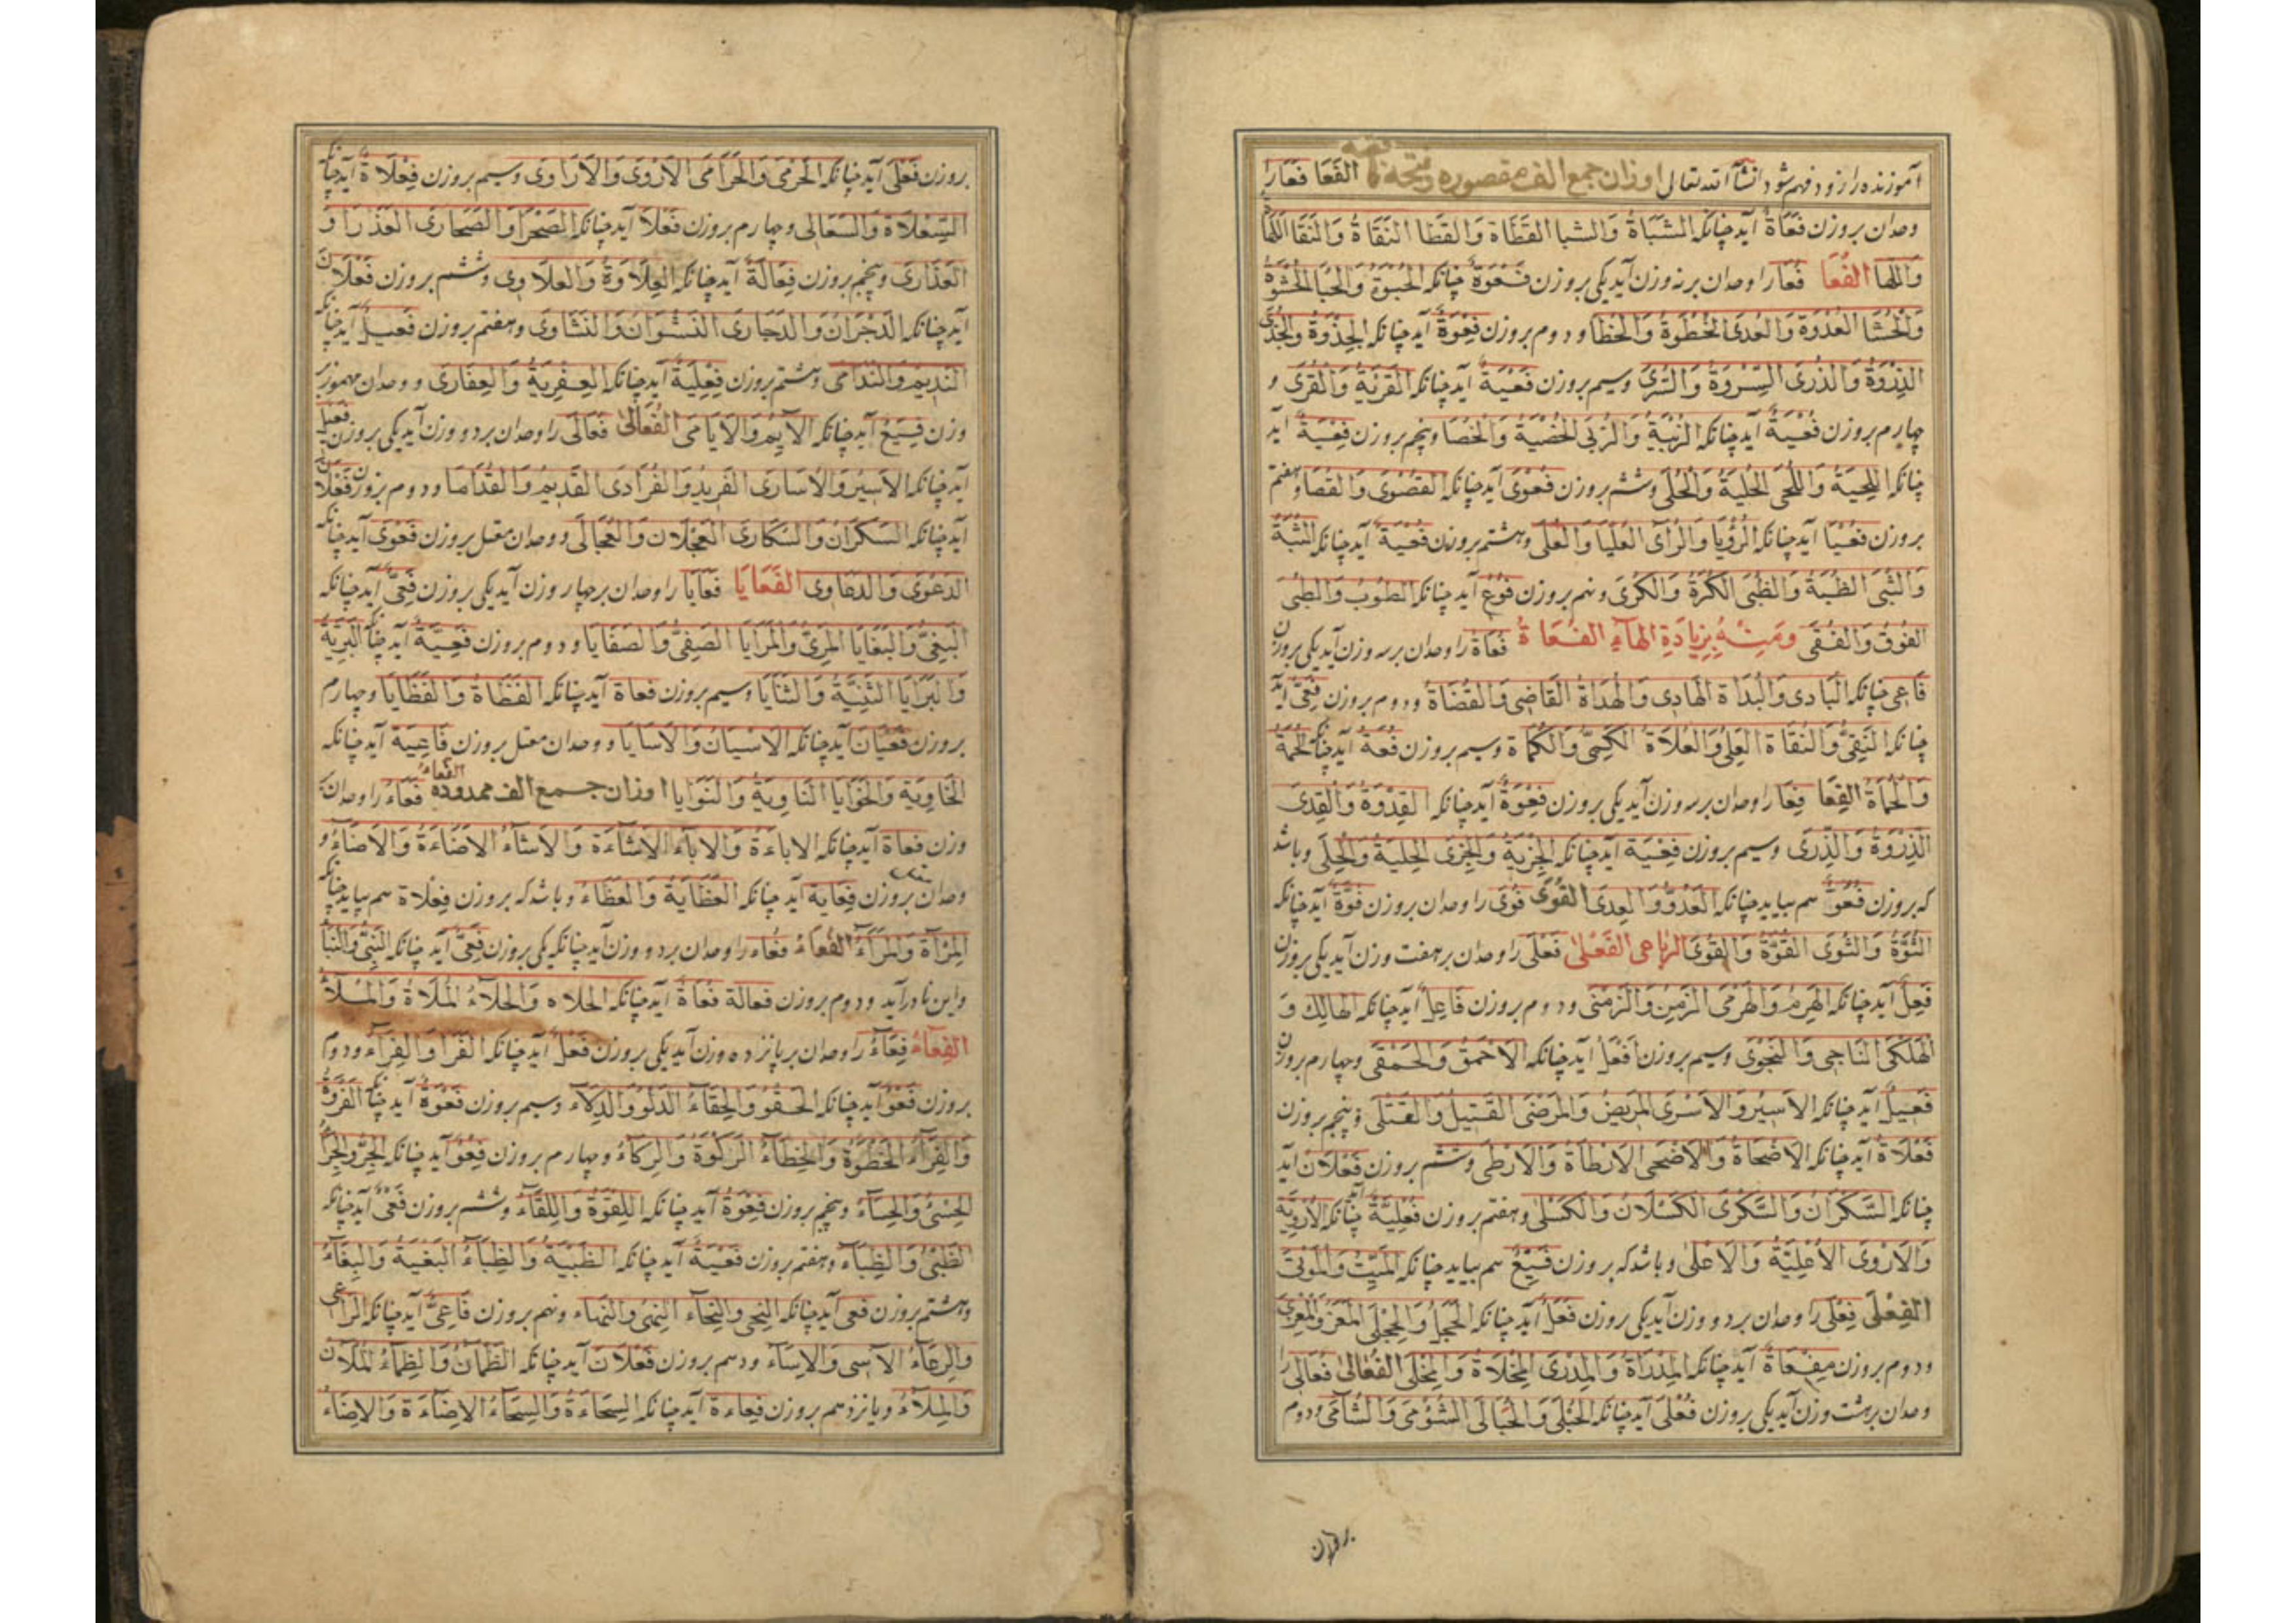 آموزنده را زود فهم شود انشآ الله تعالی اوزان جمع الف مقصوره الفَعَا فَعَا را
وحدان بروزن فَعَاةٌ آید چنانکه الشَّبَاةُ وَالشَّبا القَطَاة وَالقَطَا النَقَاةُ وَالنَقَا اللَهَا
وَاللَها الفُعَا فُعَا را وحدان بر نه وزن آید یکی بر وزن فُعْوَةٌ چنانکه الحُبْوَةُ وَالحُبَا الحُشْوَةُ
وَالحُشَا العُدْوَة وَالعُدَی الخُطْوَةُ وَالخُطَا و دوم بر وزن فِعْوَةٌ آید چنانکه الجِذْوَةُ وَالجُذَی
الذِرْوَةُ وَالذُرَی السِرْوَةُ وَالسُرَی وسیم بروزن فَعْیَةٌ آید چنانکه القَرْیَةُ وَالقُرَی و
چهارم بروزن فُعْیَةٌ آید چنانکه الزُبْیَةُ وَالزُبَی الخُصْیَةُ وَالخُصَا وپنجم بروزن فِعْیَةٌ آید
چنانکه اللِحْیَةُ وَاللُحَی الحِلْیَةُ وَالحُلَی وششم بروزن فُعْوَی آید چنانکه القُصْوَی وَالقُصَا وهفتم
بروزن فُعْیَا آید چنانکه الرُؤْیَا وَالرُأَی العُلْیَا وَالعُلَی وهشتم بروزن فُعَیَةٌ آید چنانکه الثُبَةُ
وَالثُبَی الظُبَةُ وَالظُبَی الکُرَةُ وَالکُرَی ونهم بروزن فُوعٌ آید چنانکه الطُوبُ وَالطُبَی
الفُوقُ وَالفُقَی وَمِنْهُ بِزِیَادَةِ الهَاءِ الفُعَاةُ فُعَاة را وحدان بر سه وزن آید یکی بروزن
فَاعِی چنانکه البَادِی وَالبُدَاة الهَادِی وَالهُدَاةُ القَاضِی وَالقُضَاةُ ودوم بروزن فَعِیٌّ آید
چنانکه النَقِیُّ وَالنُقَاة العَلِیُّ وَالعُلَاةُ الکَمِیُّ وَالکُمَاة وسیم بروزن فُعَةٌ آید چنانکه الحُمَةُ
وَالحُمَاةُ الفِعَا فِعَا را وحدان بر سه وزن آید یکی بروزن فِعْوَةٌ آید چنانکه القِدْوَةُ وَالقِدَی
الذِرْوَةُ وَالذِرَی وسیم بروزن فِعْیَة آید چنانکه الجِزْیَةُ وَالجِزَی الحِلْیَةُ وَالحِلَی وباشد
که بروزن فَعُوٌّ هم بیاید چنانکه العَدُوُّ وَالعِدَی القُوَی فُوَی را وحدان بروزن فُوَّةٌ آید چنانکه
الثُوَّةُ وَالثُوَی القُوَّةُ وَالقُوَی الرباعی الفَعْلَی فَعْلَی را وحدان بر هفت وزن آید یکی بروزن
فَعِلٌ آید چنانکه الهَرِمُ وَالهَرْمَی الزَمِنُ وَالزَمْنَی ودوم بروزن فَاعِلٌ آید چنانکه الهَالِكُ وَ
الهَلْکَی النَاجِی وَالنَجْوَی وسیم بروزن اَفْعَلُ آید چنانکه الاَحْمَقُ وَالحَمْقَی وچهارم بروزن
فَعِیلٌ آید چنانکه الاَسِیرُ وَالاَسْرَی المَرِیضُ وَالمَرْضَی القَتِیلُ وَالقَتْلَی وپنجم بروزن
فَعْلَاةٌ آید چنانکه الاَضْحَاةُ وَالاَضْحَی الاَرْطَاةُ وَالاَرْطَی وششم بروزن فَعْلَانُ آید
چنانکه السَکْرَانُ وَالسَکْرَی الکَسْلَانُ وَالکَسْلَی وهفتم بروزن فُعْلِیَّةٌ آید چنانکه الاُرْوِیَّةُ
وَالاَرْوَی الاُعْلِیَّةُ وَالاَعْلَی وباشد که بروزن فَیْعِلٌ هم بیاید چنانکه المَیِّتُ وَالمَوْتَی
الفِعْلَی فِعْلَی را وحدان بر دو وزن آید یکی بروزن فَعَلٌ آید چنانکه الحَجَلُ وَالحِجْلَی المَعَزُ وَالمِعْزَی
ودوم بروزن مِفْعَاةٌ آید چنانکه المِدْرَاةُ وَالمِدْرَی المِخْلَاةُ وَالمِخْلَی الفَعَالَی فَعَالَی را
وحدان بر هشت وزن آید یکی بروزن فُعْلَی آید چنانکه الحُبْلَی وَالحَبَالَی الشُؤْمَی وَالشَآمَی ودوم
بروزن فَعْلَی آید چنانکه الحَرْمَی وَالحَرَامَی الاَرْوَی وَالاَرَاوَی وسیم بروزن فِعْلَاةٌ آید چنانکه
السِعْلَاة وَالسَعَالَی وچهارم بروزن فَعْلَا آید چنانکه الصَحْرَا وَالصَحَارَی العَذْرَا وَ
العَذَارَی وپنجم بروزن فِعَالَةٌ آید چنانکه العِلَاوَةُ وَالعَلَاوِی وششم بروزن فَعْلَانَ
آید چنانکه الدَجْرَانُ وَالدَجَارَی النَشْوَانُ وَالنَشَاوَی وهفتم بروزن فَعِیلٌ آید چنانکه
النَدِیمُ وَالنَدَامَی وهشتم بروزن فِعْلِیَةٌ آید چنانکه العِفْرِیَةُ وَالعَفَارَی ووحدان مهموز بر
وزن فَیْعِلٌ آید چنانکه الاَیِّمُ وَالاَیَامَی الفُعَالَی فُعَالَی را وحدان بر دو وزن آید یکی بروزن فَعِیلٌ
آید چنانکه الاَسِیرُ وَالاُسَارَی الفَرِیدُ وَالفُرَادَی القَدِیمُ وَالقُدَامَا ودوم بروزن فَعْلَانَ
آید چنانکه السَکْرَانُ وَالسُکَارَی العَجْلَان وَالعُجَالَی ووحدان معتل بروزن فَعْوَی آید چنانکه
الدَعْوَی وَالدَعَاوِی الفَعَایَا فَعَایَا را وحدان بر چهار وزن آید یکی بروزن فَعِیٌّ آید چنانکه
البَغِیُّ وَالبَغَایَا المَرِیُّ وَالمَرَایَا الصَفِیُّ وَالصَفَایَا ودوم بروزن فَعِیَّةٌ آید چنانکه البَرِیَّةُ
وَالبَرَایَا الثَنِیَّةُ وَالثَنَایَا وسیم بروزن فعاة آید چنانکه وچهارم
بروزن فَعْیَان آید چنانکه الاَسْیَانُ وَالاَسَایَا ووحدان معتل بروزن فَاعِیَة آید چنانکه
الحَاوِیَة وَالحَوَایَا النَاوِیَةُ وَالنَوَایَا اوزان جمع الف ممدوده الفَعَاءُ فَعَاءُ را وحدان بر
وزن فَعَاة آید چنانکه الاَبَاءَةُ وَالاَبَاءُ الاَشَاءَة وَالاَشَاءُ الاَضَاءَةُ وَالاَضَاءُ و
وحدان بروزن فَعَایَة آید چنانکه العَظَایَةُ وَالعَظَاءُ وباشد که بروزن فِعْلَاة هم بیاید چنانکه
المِرْآة وَالمَرَاءُ الفُعَاءُ فُعَاء را وحدان بر دو وزن آید چنانکه یکی بروزن فَعِیٌّ آید چنانکه النَبِیُّ وَالنُبَآءُ
واین نادر آید ودوم بروزن فعالة فُعَاةٌ آید چنانکه الحُلَاه وَالحُلَآءُ المُلَاةُ وَالمُلَآءُ
الفِعَآءُ فِعَآءُ را وحدان بر پانزده وزن آید یکی بروزن فَعَلٌ آید چنانکه الفَرَا وَالفِرَآءُ ودوم
بروزن فَعْوٌ آید چنانکه الحَقْوُ وَالحِقَآءُ الدَلْوُ وَالدِلَآءُ وسیم بروزن فَعْوَةٌ آید چنانکه الفَرْوَةُ
وَالفِرَآءُ الخَطْوَةُ وَالخِطَآءُ الرَکْوَةُ وَالرِکَاءُ وچهارم بروزن فِعْوٌ آید چنانکه الجِرْوُ وَالجِرَآءُ
الحِسْیُ وَالحِسَآءُ وپنجم بروزن فِعْوَةٌ آید چنانکه اللِقْوَةُ وَاللِقَآءُ وششم بروزن فَعْیٌ آید چنانکه
الظَبْیُ وَالظِبَآءُ وهفتم بروزن فَعْیَةٌ آید چنانکه الظَبْیَةُ وَالظِبَآءُ البَغْیَةُ وَالبِغَآءُ
وهشتم بروزن فعی آید چنانکه النِحی والنِحَآء النِهی والنِهاء ونهم بروزن فَاعِیٌ آید چنانکه الرَاعِی
وَالرِعَآءُ الآسِی وَالاِسَآءُ ودهم بروزن فَعْلَان آید چنانکه الظَمْآنُ وَالظِمَآءُ المَلْآنُ
وَالمِلَآءُ ویازدهم بروزن فِعَاءَة آید چنانکه السِحَاءَةُ وَالسِحَآءُ الاِضَاءَة وَالاِضَآءُ